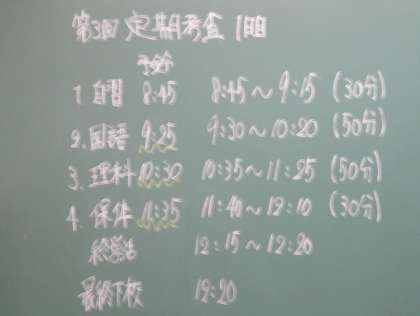 第3回 定期考査 1日目
予鈴
1. 自習 8:45 8:45〜9:15 (30分)
2. 国語 9:25 9:30〜10:20 (50分)
3. 理科 10:30 10:35〜11:25 (50分)
4. 保体 11:35 11:40〜12:10 (30分)
終学活 12:15〜12:20
最終下校 12:20